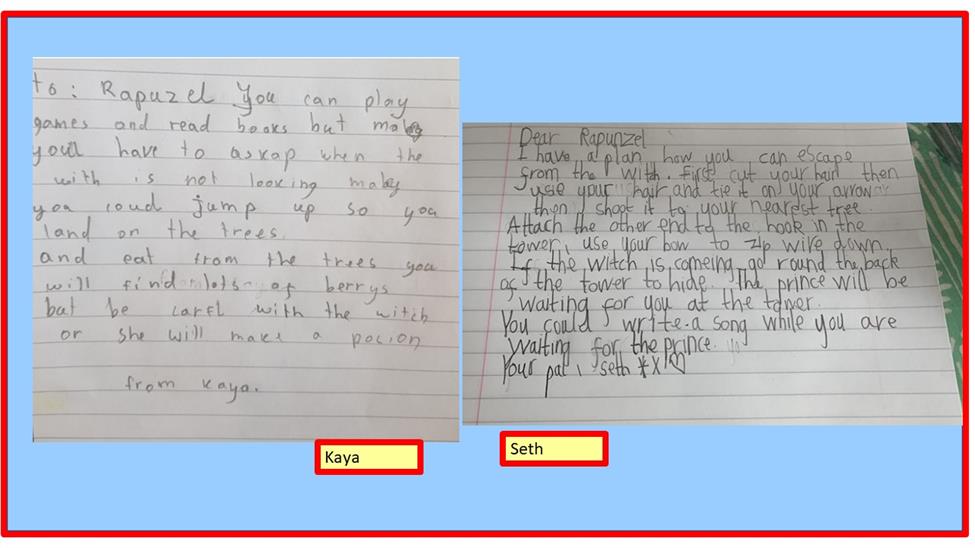 to: Rapuzel You can play
games and read books but maby
youll have to askap when the
with is not looking maby
you coud jump up so you
land on the trees.
and eat from the trees you
will find lots of berrys
but be carfl with the witch
or she will make a pocion
from Kaya.
Kaya
Dear Rapunzel
I have a plan how you can escape
from the witch. first cut your hair then
use your hair and tie it on your arrow
then shoot it to your nearest tree.
Attach the other end to the hook in the
tower, use your bow to zip wire down.
If the witch is comeing go round the back
of the tower to hide. The prince will be
waiting for you at the tower.
You could write a song while you are
waiting for the prince.
Your pal, seth
Seth